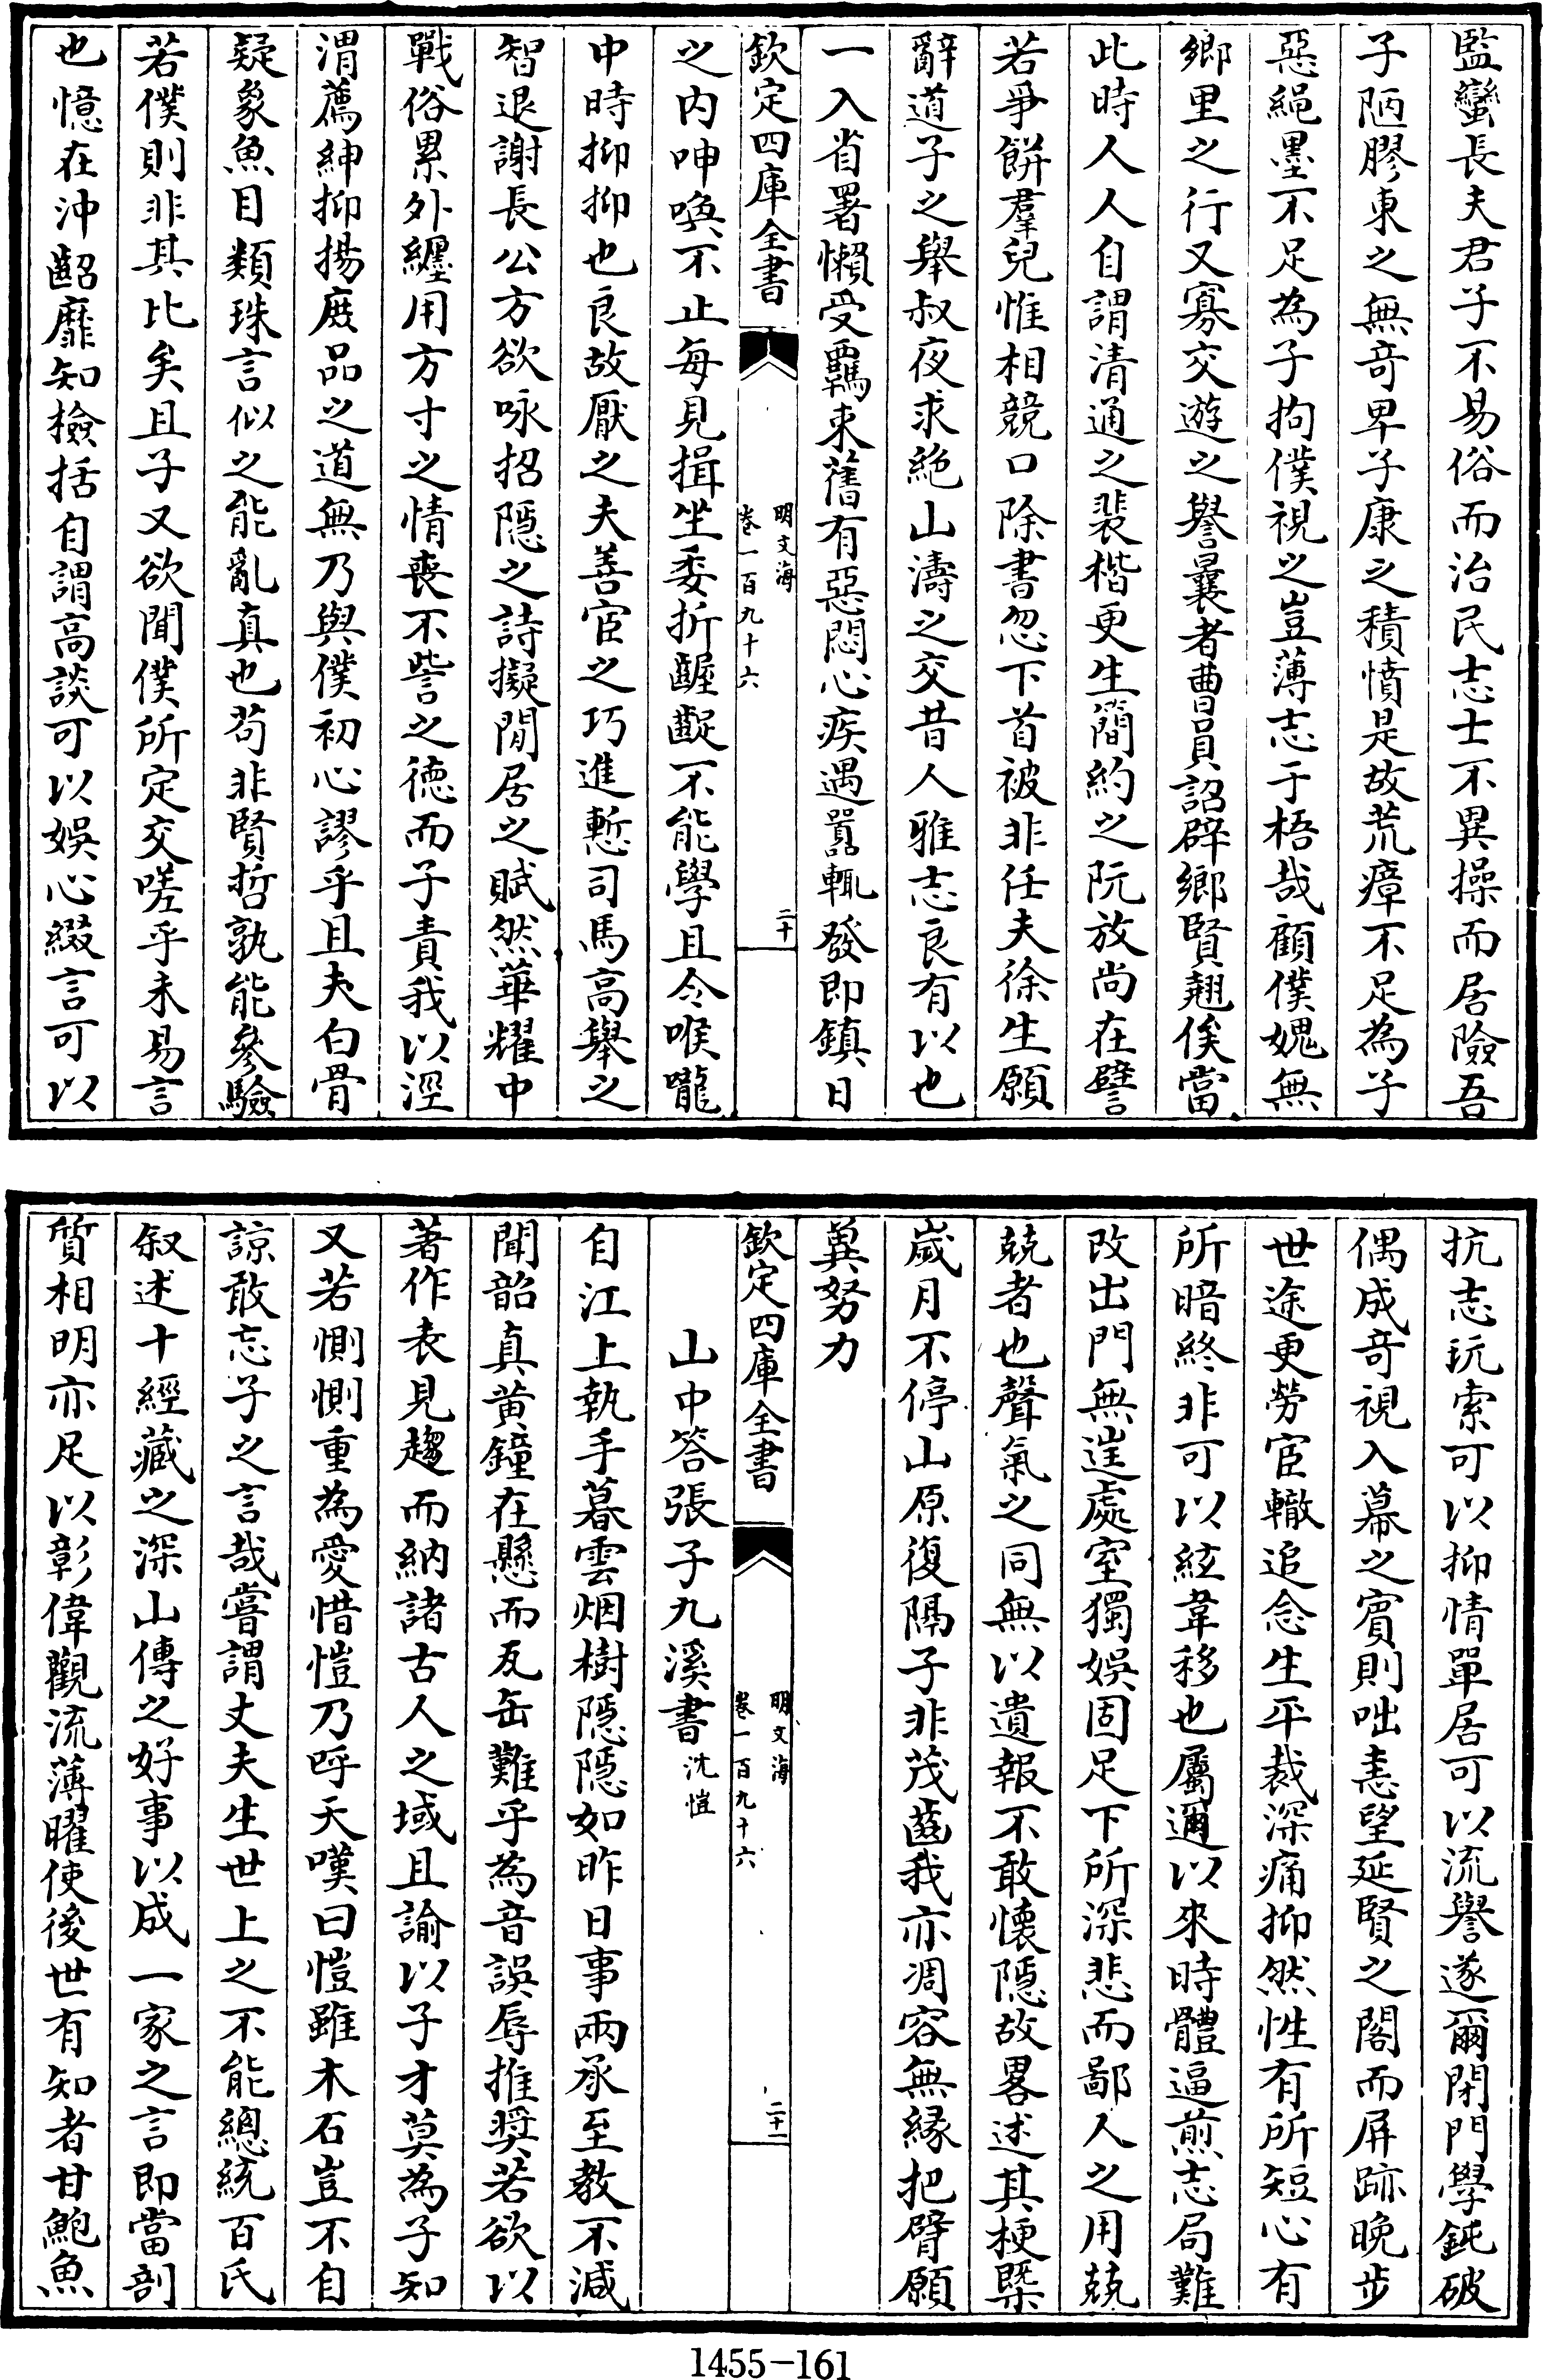 監蠻長夫君子不易俗而治民志士不異操而居險吾
子陋膠東之無竒卑子康之積憤是故荒瘴不足為子
惡繩墨不足為子拘僕視之豈薄志于梧哉顧僕媿無
鄉里之行又寡交遊之譽曩者曹員詔辟鄉賢翹俟當
此時人人自謂清通之裴楷更生簡約之阮放尚在譬
若爭餅羣兒惟相競口除書忽下首被非任夫徐生願
辭道子之舉叔夜求絶山濤之交昔人雅志良有以也
一入省署懶受羈束舊有惡悶心疾遇囂輒發即鎮日
欽定四庫全書
明文海
卷一百九十六
二十
之内呻喚不止每見揖坐委折齷齪不能學且令喉嚨
中時抑抑也良故厭之夫善宦之巧進慙司馬高舉之
智退謝長公方欲咏招隱之詩擬閒居之賦然華耀中
戰俗累外纏用方寸之情喪不訾之德而子責我以涇
渭薦紳抑揚庶品之道無乃與僕初心謬乎且夫白骨
疑象魚目類珠言似之能亂真也苟非賢哲孰能參驗
若僕則非其比矣且子又欲聞僕所定交嗟乎未易言
也憶在沖齠靡知檢括自謂高談可以娛心綴言可以
抗志玩索可以抑情單居可以流譽遂爾閉門學鈍破
偶成竒視入幕之賓則咄恚望延賢之閣而屏跡晚步
世途更勞宦轍追念生平裁深痛抑然性有所短心有
所暗終非可以絃韋移也屬邇以來時體逼煎志局難
改出門無逹處室獨娛固足下所深悲而鄙人之用兢
兢者也聲氣之同無以遺報不敢懷隱故畧述其梗槩
歲月不停山原復隔子非茂齒我亦凋容無緣把臂願
冀努力
欽定四庫全書
明文海
卷一百九十六
二十一
山中答張子九溪書 沈愷
自江上執手暮雲烟樹隱隱如昨日事兩承至教不減
聞韶真黄鐘在懸而瓦缶難乎為音誤辱推奬若欲以
著作表見趨而納諸古人之域且諭以子才莫為子知
又若惻惻重為愛惜愷乃呼天嘆曰愷雖木石豈不自
諒敢忘子之言哉嘗謂丈夫生世上之不能總統百氏
叙述十經藏之深山傳之好事以成一家之言即當剖
質相明亦足以彰偉觀流薄曜使後世有知者甘鮑魚
1455-161